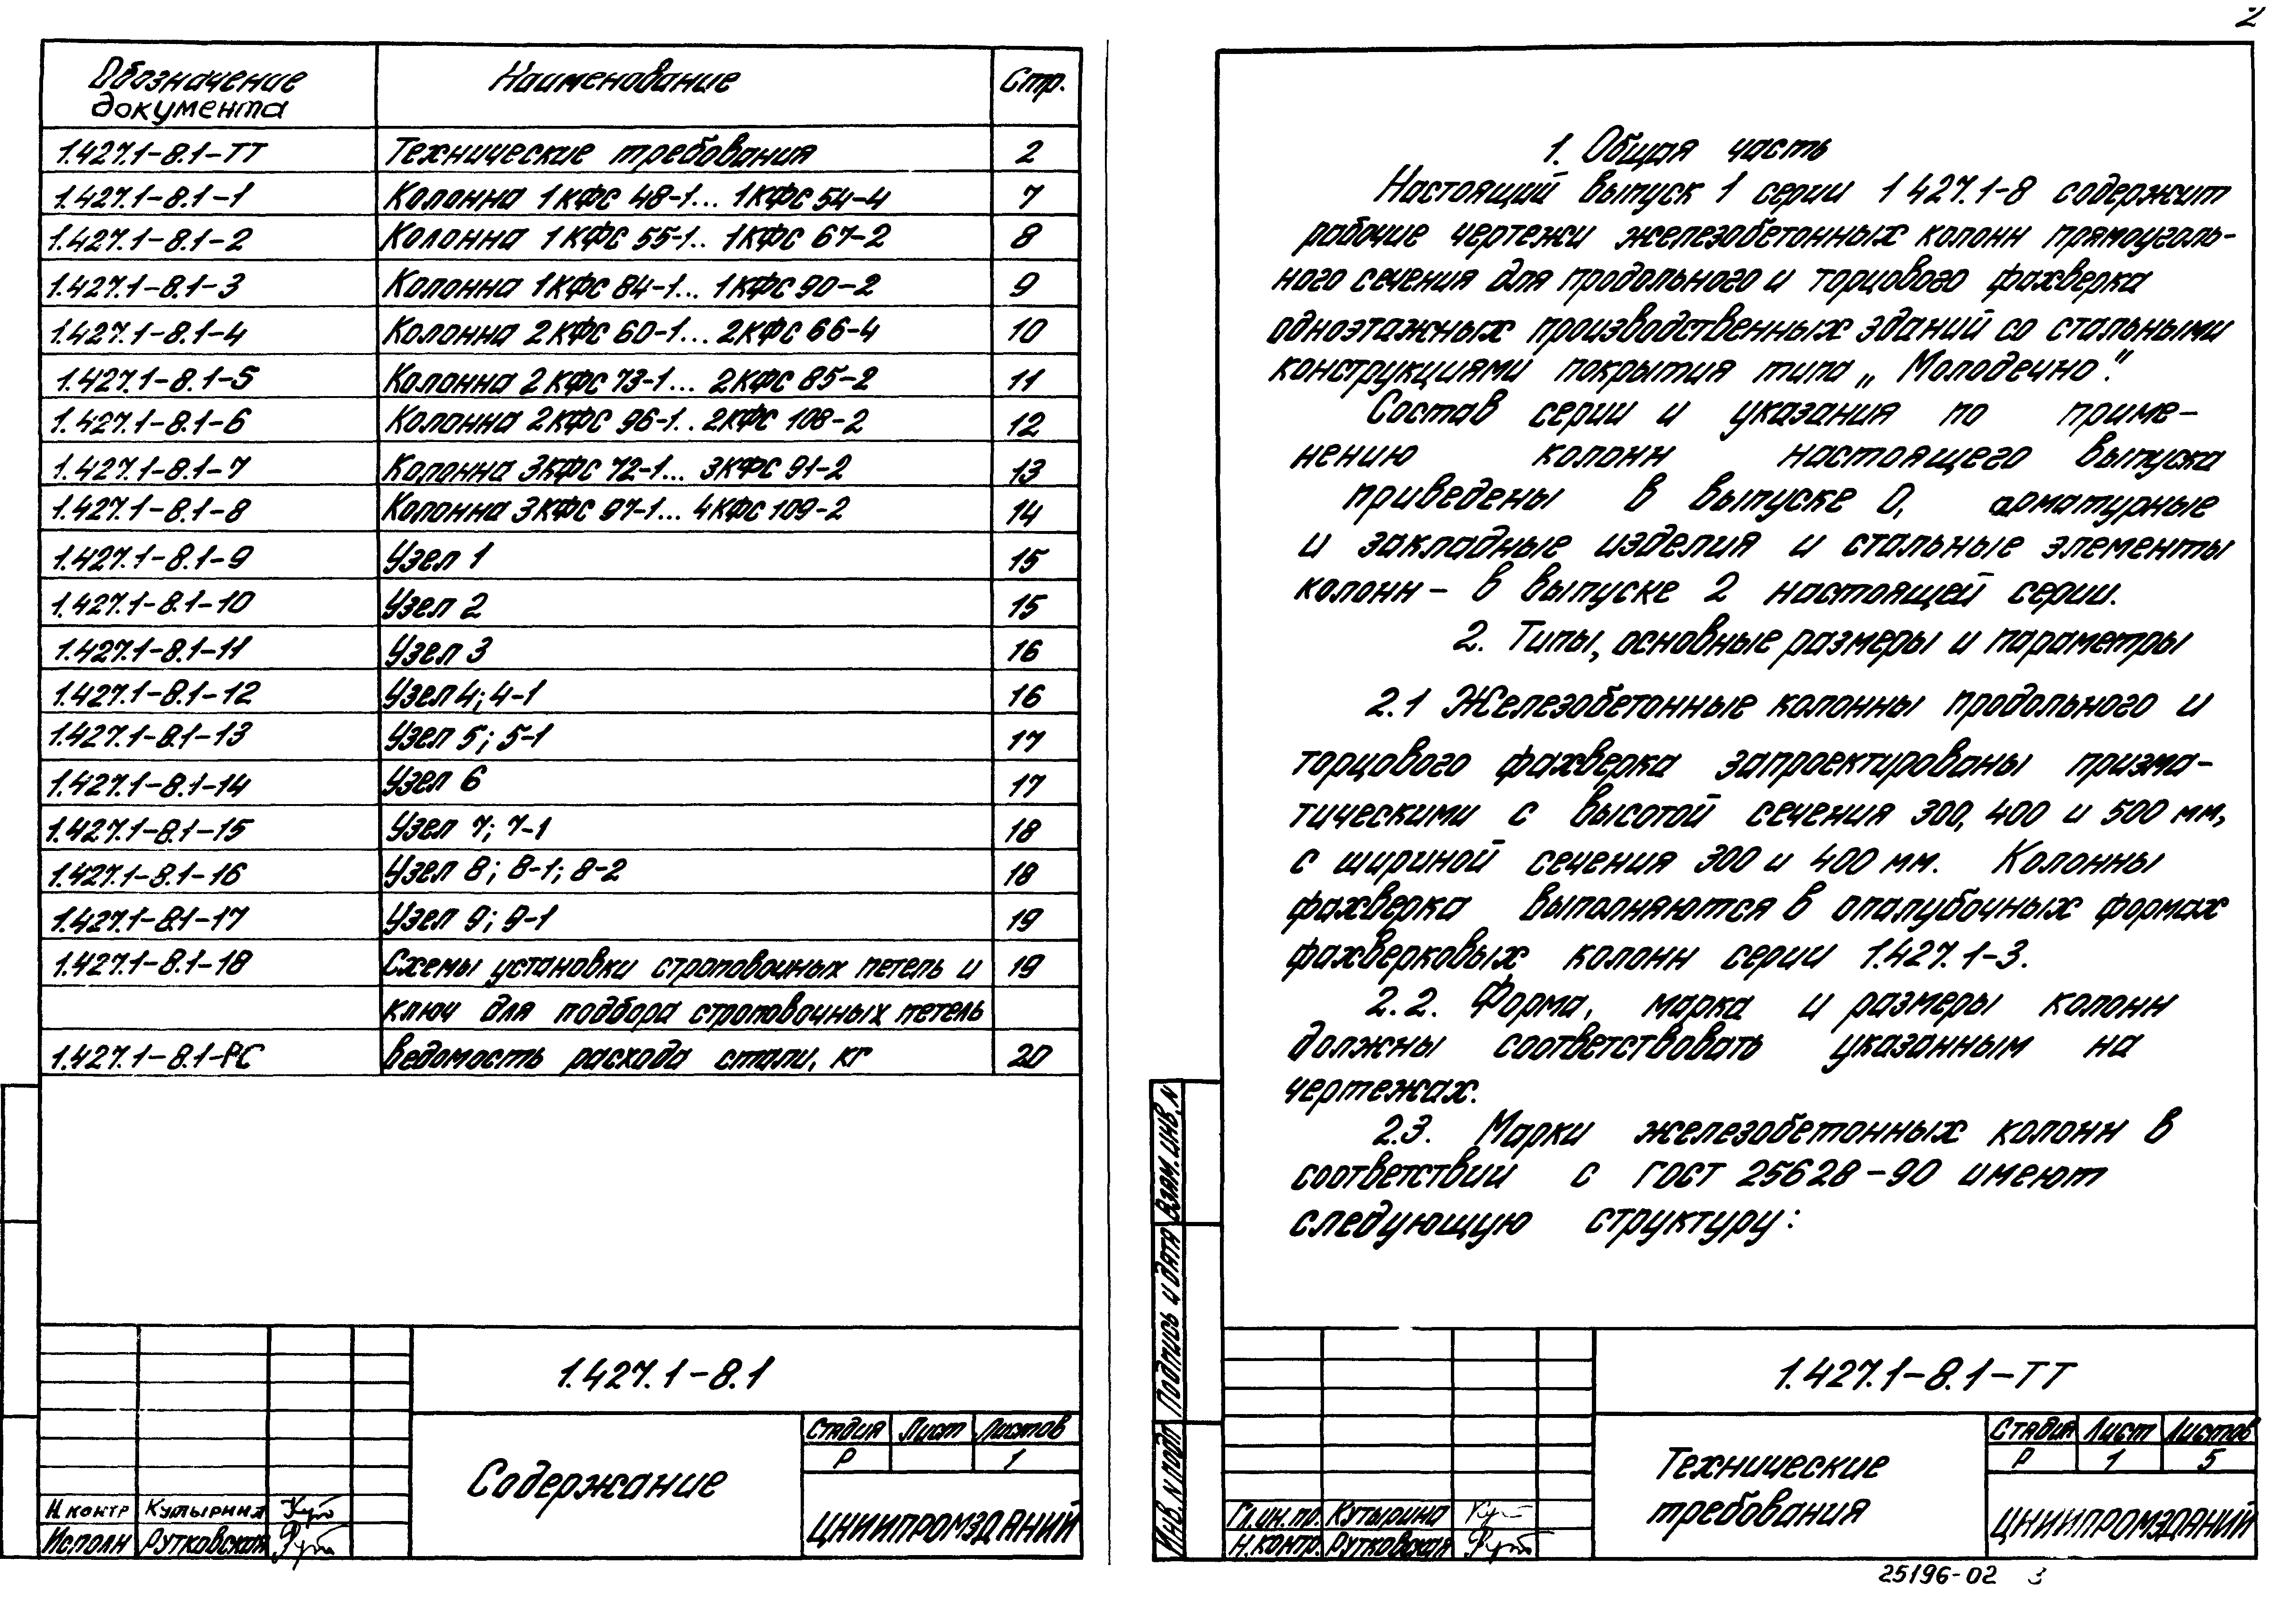 Обозначение документа Наименование Стр.
1.427.1-8.1-ТТ Технические требования 2
1.427.1-8.1-1 Колонна 1КФС 48-1... 1КФС 54-4 7
1.427.1-8.1-2 Колонна 1КФС 55-1.. 1КФС 67-2 8
1.427.1-8.1-3 Колонна 1КФС 84-1... 1КФС 90-2 9
1.427.1-8.1-4 Колонна 2КФС 60-1... 2КФС 66-4 10
1.427.1-8.1-5 Колонна 2КФС 73-1... 2КФС 85-2 11
1.427.1-8.1-6 Колонна 2КФС 96-1.. 2КФС 108-2 12
1.427.1-8.1-7 Колонна 3КФС 72-1... 3КФС 91-2 13
1.427.1-8.1-8 Колонна 3КФС 97-1... 4КФС 109-2 14
1.427.1-8.1-9 Узел 1 15
1.427.1-8.1-10 Узел 2 15
1.427.1-8.1-11 Узел 3 16
1.427.1-8.1-12 Узел 4; 4-1 16
1.427.1-8.1-13 Узел 5; 5-1 17
1.427.1-8.1-14 Узел 6 17
1.427.1-8.1-15 Узел 7; 7-1 18
1.427.1-8.1-16 Узел 8; 8-1; 8-2 18
1.427.1-8.1-17 Узел 9; 9-1 19
1.427.1-8.1-18 Схемы установки строповочных петель и 19
ключ для подбора строповочных петель
1.427.1-8.1-РС Ведомость расхода стали, кг 20
1.427.1-8.1
Содержание
Стадия Лист Листов
Р 1
ЦНИИПРОМЗДАНИЙ
Н.контр Кутырина
Исполн Рутковская
2
1. Общая часть
Настоящий выпуск 1 серии 1 427.1-8 содержит
рабочие чертежи железобетонных колонн прямоуголь-
ного сечения для продольного и торцового фахверка
одноэтажных производственных зданий со стальными
конструкциями покрытия типа „Молодечно".
Состав серии и указания по приме-
нению колонн настоящего выпуска
приведены в выпуске 0, арматурные
и закладные изделия и стальные элементы
колонн - в выпуске 2 настоящей серии.
2. Типы, основные размеры и параметры
2.1 Железобетонные колонны продольного и
торцового фахверка запроектированы призма-
тическими с высотой сечения 300, 400 и 500 мм,
с шириной сечения 300 и 400 мм. Колонны
фахверка выполняются в опалубочных формах
фахверковых колонн серии 1.427.1-3.
2.2. Форма, марка и размеры колонн
должны соответствовать указанным на
чертежах.
2.3. Марки железобетонных колонн в
соответствий с ГОСТ 25628-90 имеют
следующую структуру:
Взам. инв. N
Подпись и дата
Инв. N подл
1.427.1-8.1-ТТ
Технические
требования
Стадия Лист Листов
Р 1 5
ЦНИИПРОМЗДАНИЙ
Гл.ин.пр. Кутырина
Н.контр. Рутковская
25196-02 3